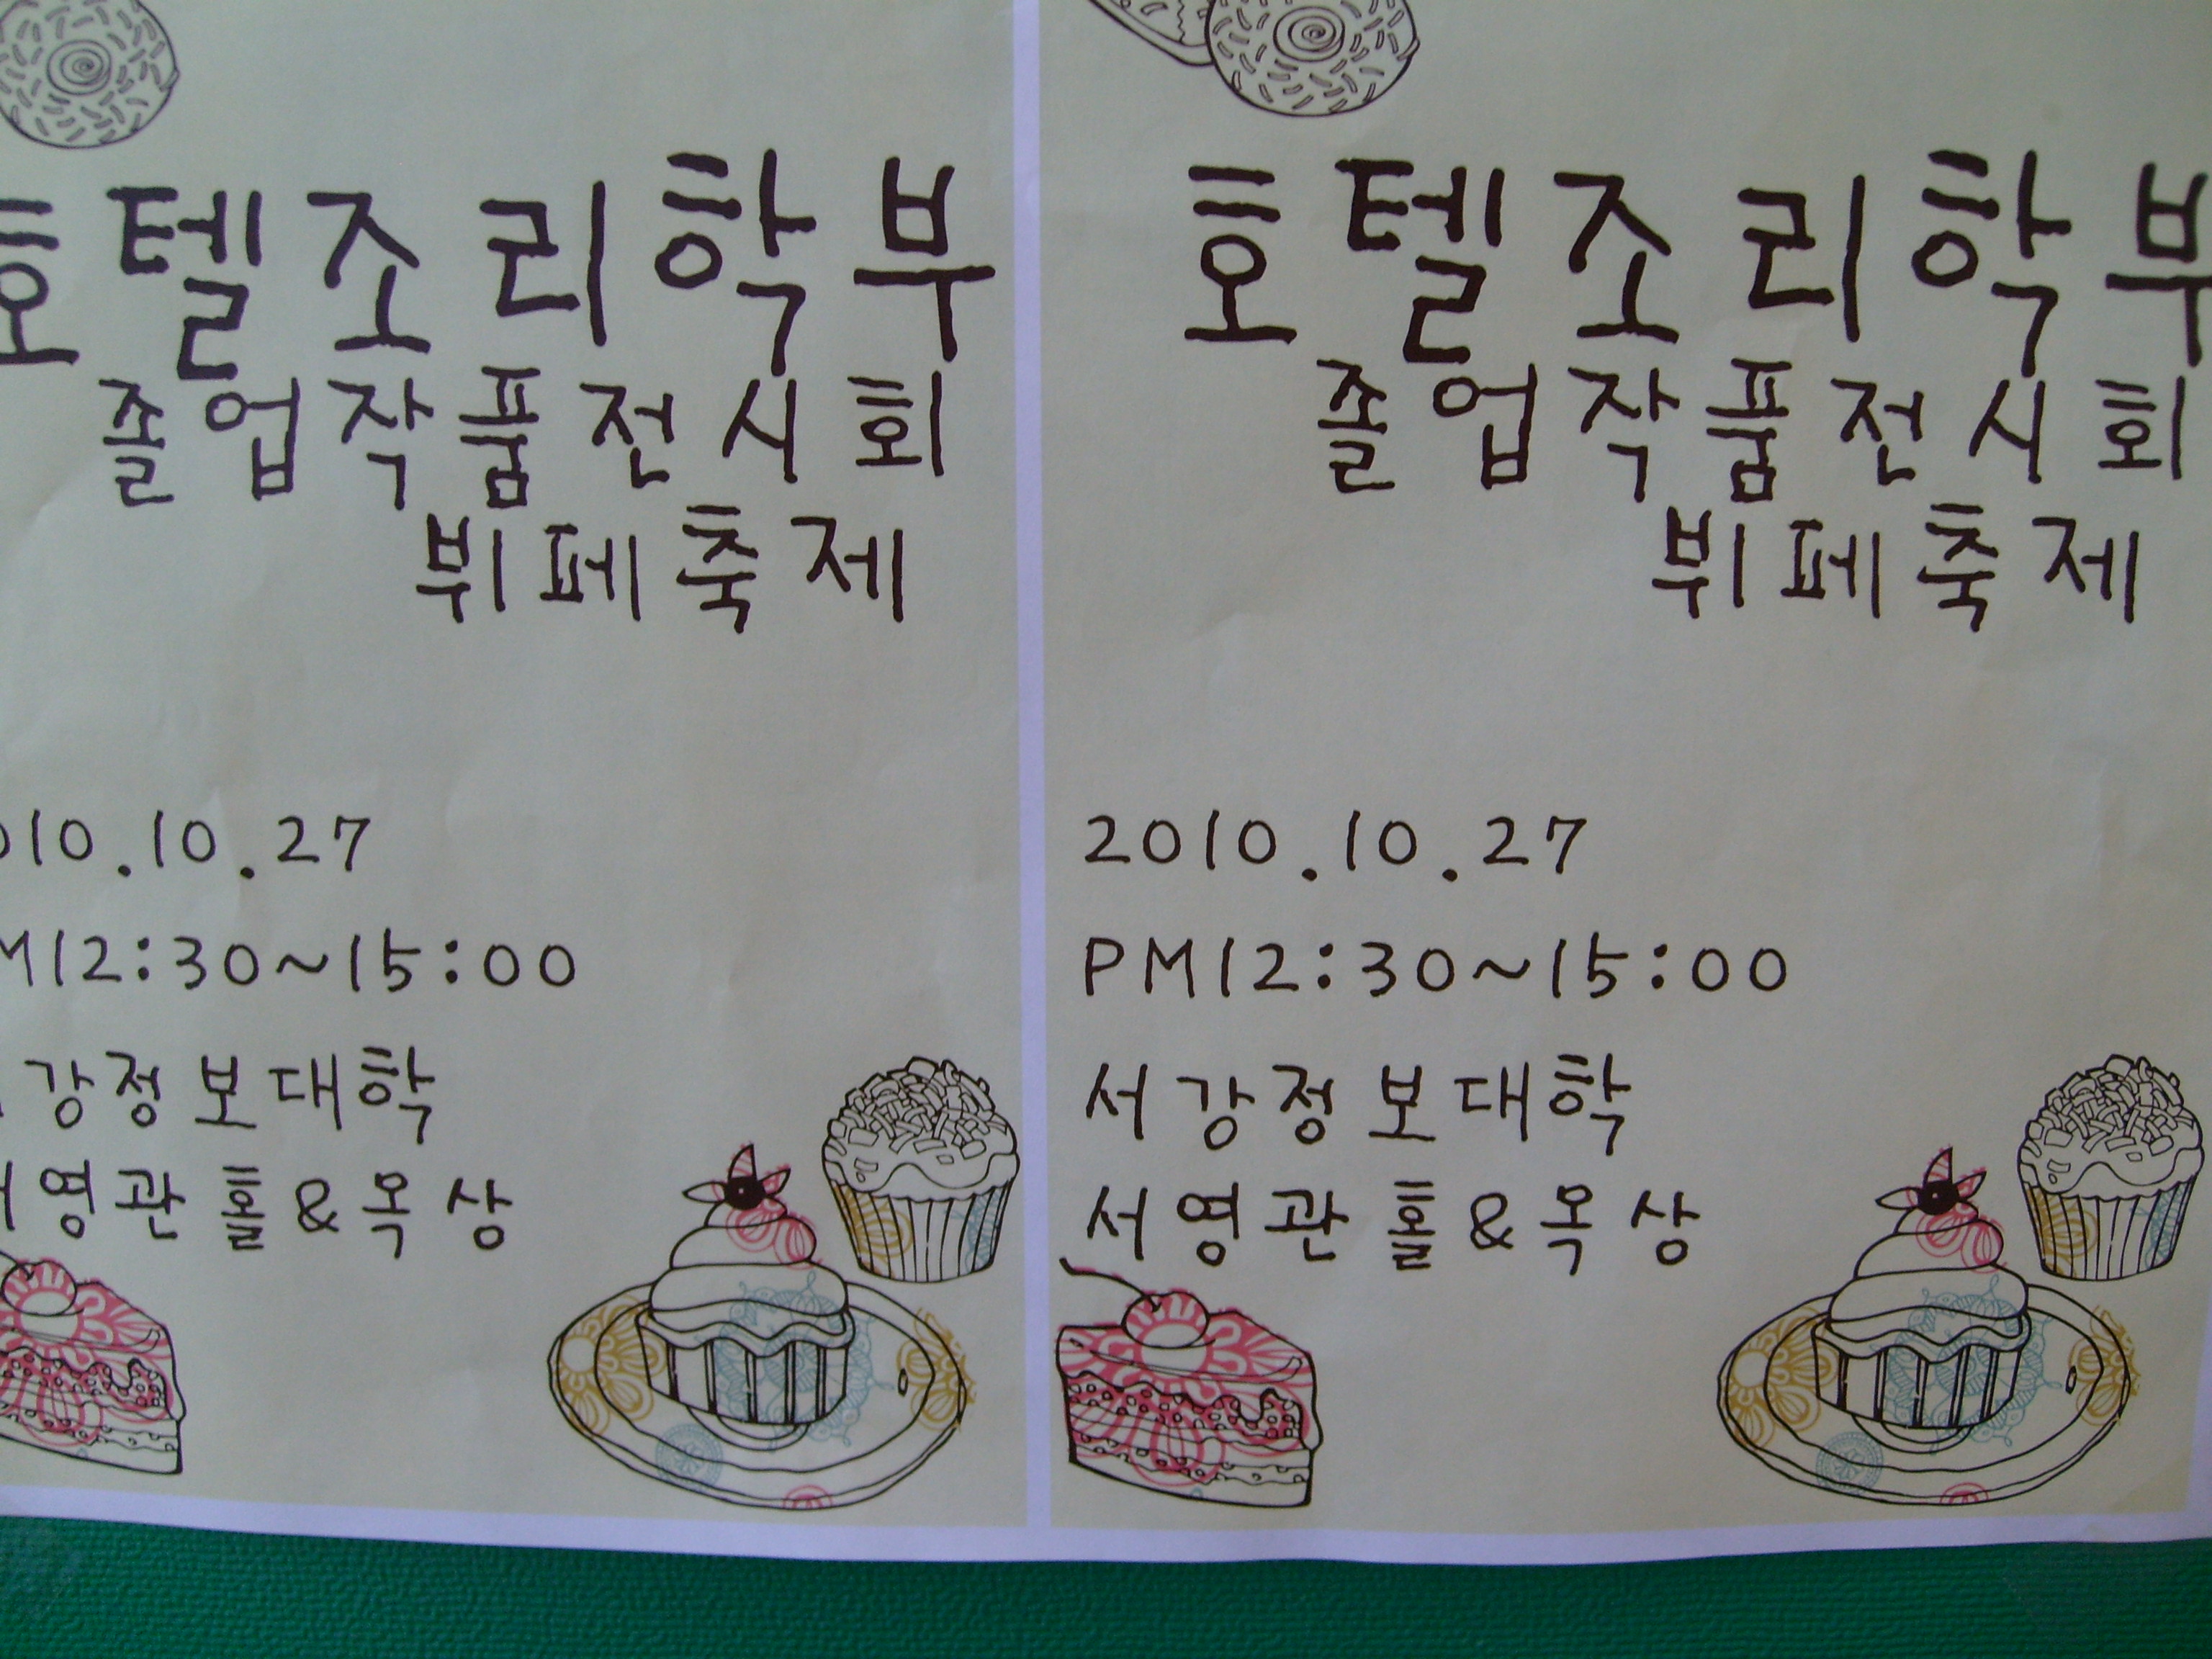 호텔조리학부
졸업작품전시회
뷔페축제
010.10.27
M12:30~15:00
강정보대학
영관홀&옥상
호텔조리학부
졸업작품전시회
뷔페축제
2010.10.27
PM12:30~15:00
서강정보대학
서영관홀&옥상